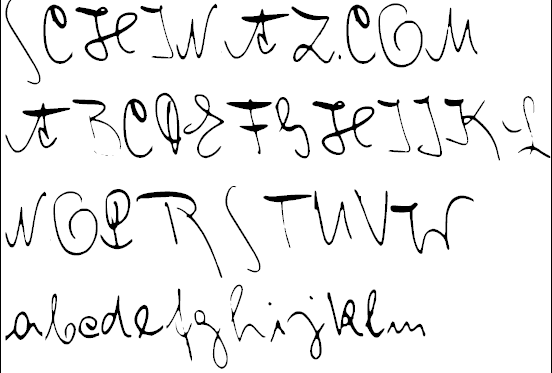 SCHINAZ.COM
ABCDEFGHIJKL
NOPRSTUVW
abcdefghijklm